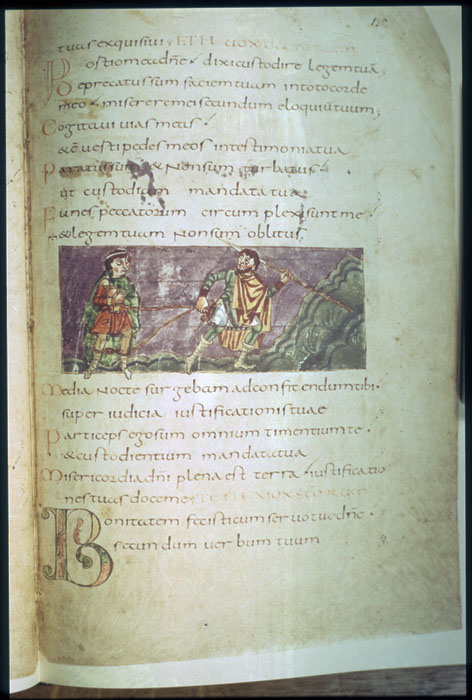 tuas exquisiui
Portiomeadne · dixicustodire legemtuā,
Deprecatussum faciemtuam intotocorde
meo · misereremei secundum eloquiūtuum;
Cogitaui uias meas ·
&auerti pedes meos intestimoniatua
Paratussum & nonsum turbatus ·
ut custodiam mandatatua
Funes peccatorum circumplexisuntme ·
&legemtuam nonsum oblitus
Media nocte surgebam adconfitendumtibi ·
super iudicia iustificationistuae
Particeps egosum omnium timentiumte ·
&custodientium mandatatua
Misericordia dni plena est terra · iustificatio
nestuas doceme
Bonitatem fecisticum seruotuodne ·
secundum uerbum tuum